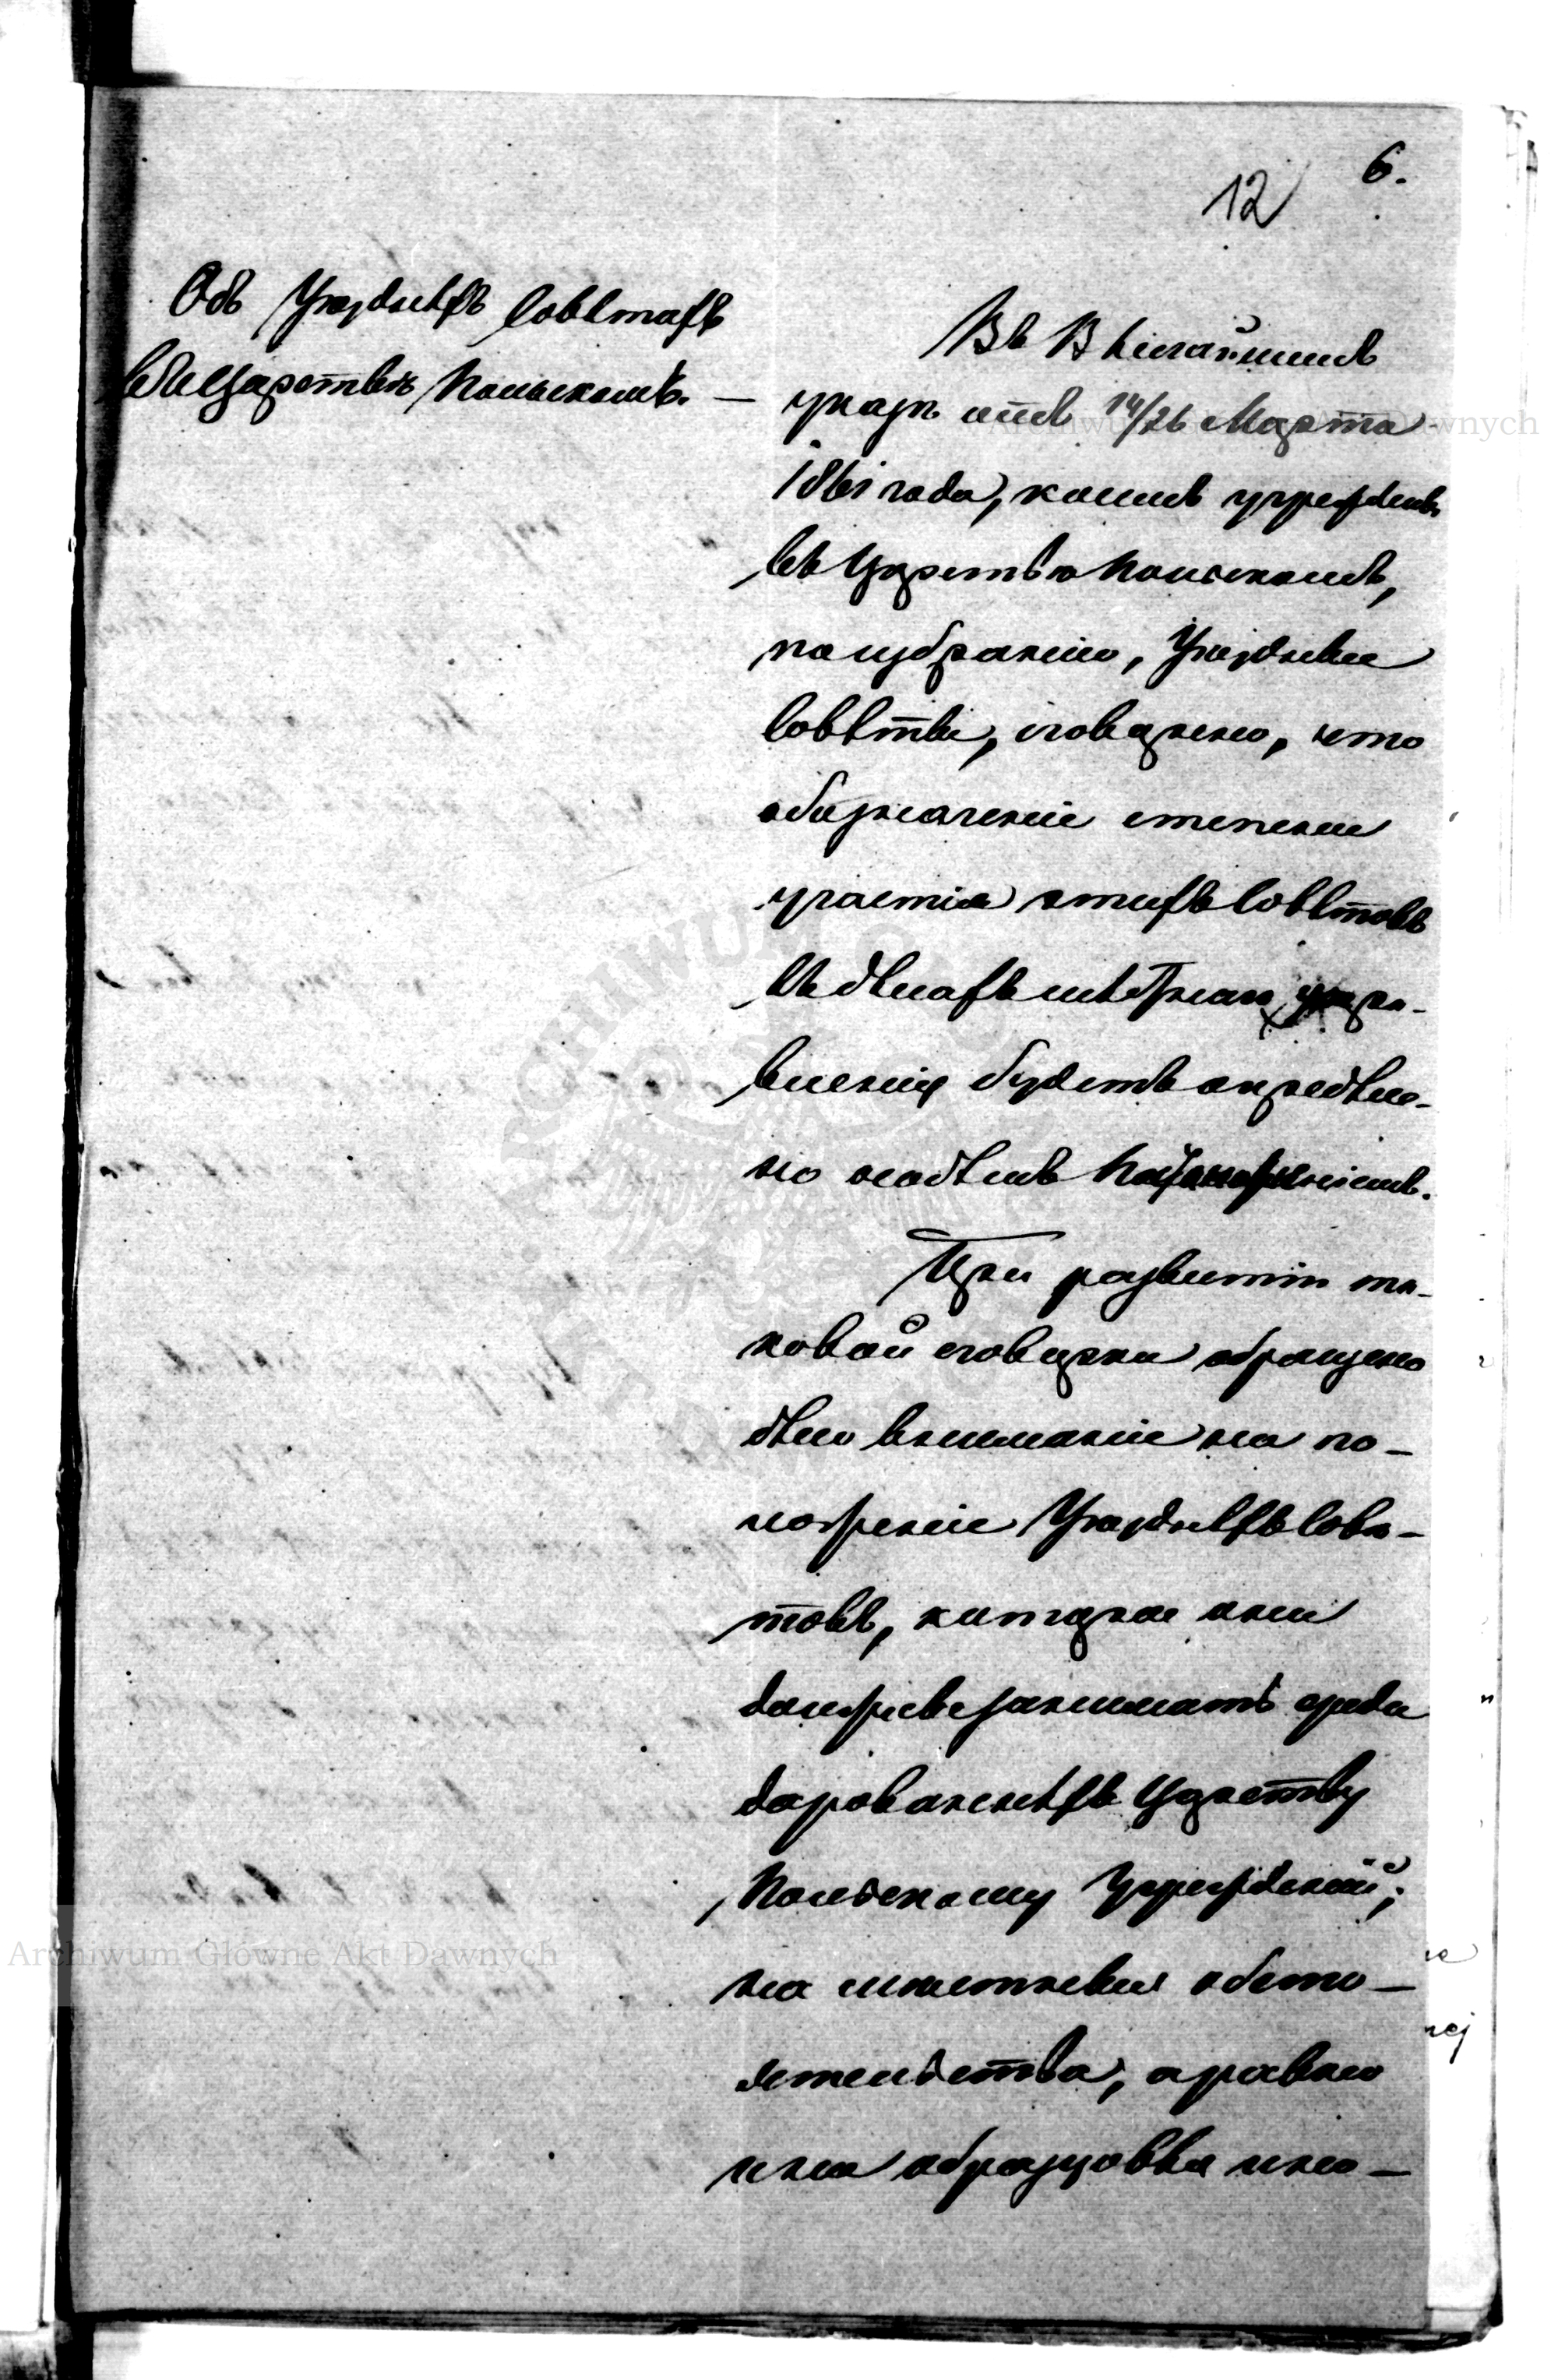 6.
12
Объ Уѣздныхъ Совѣтахъ
въ Царствѣ Польскомъ. —
Въ Высочайшемъ
указѣ отъ 14/26 Марта
1861 года, коимъ учреждены
въ Царствѣ Польскомъ,
по избранію, Уѣздные
Совѣты, оговорено, что
обозначеніе степени
участія этихъ Совѣтовъ
въ дѣлахъ мѣстнаго упра-
вленія будетъ опредѣле-
но особымъ Положеніемъ.
При развитіи та-
ковой оговорки обращено
было вниманіе на по-
ложеніе Уѣздныхъ Совѣ-
товъ, которое они
должны занимать среди
дарованныхъ Царству
Польскому Учрежденій;
на мѣстныя обсто-
ятельства, а равно
и на образцовыя ино-
Archiwum Główne Akt Dawnych